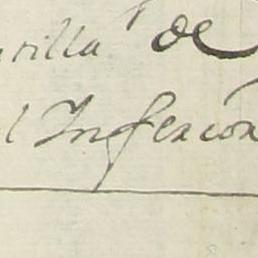 rilla de
l Inferior